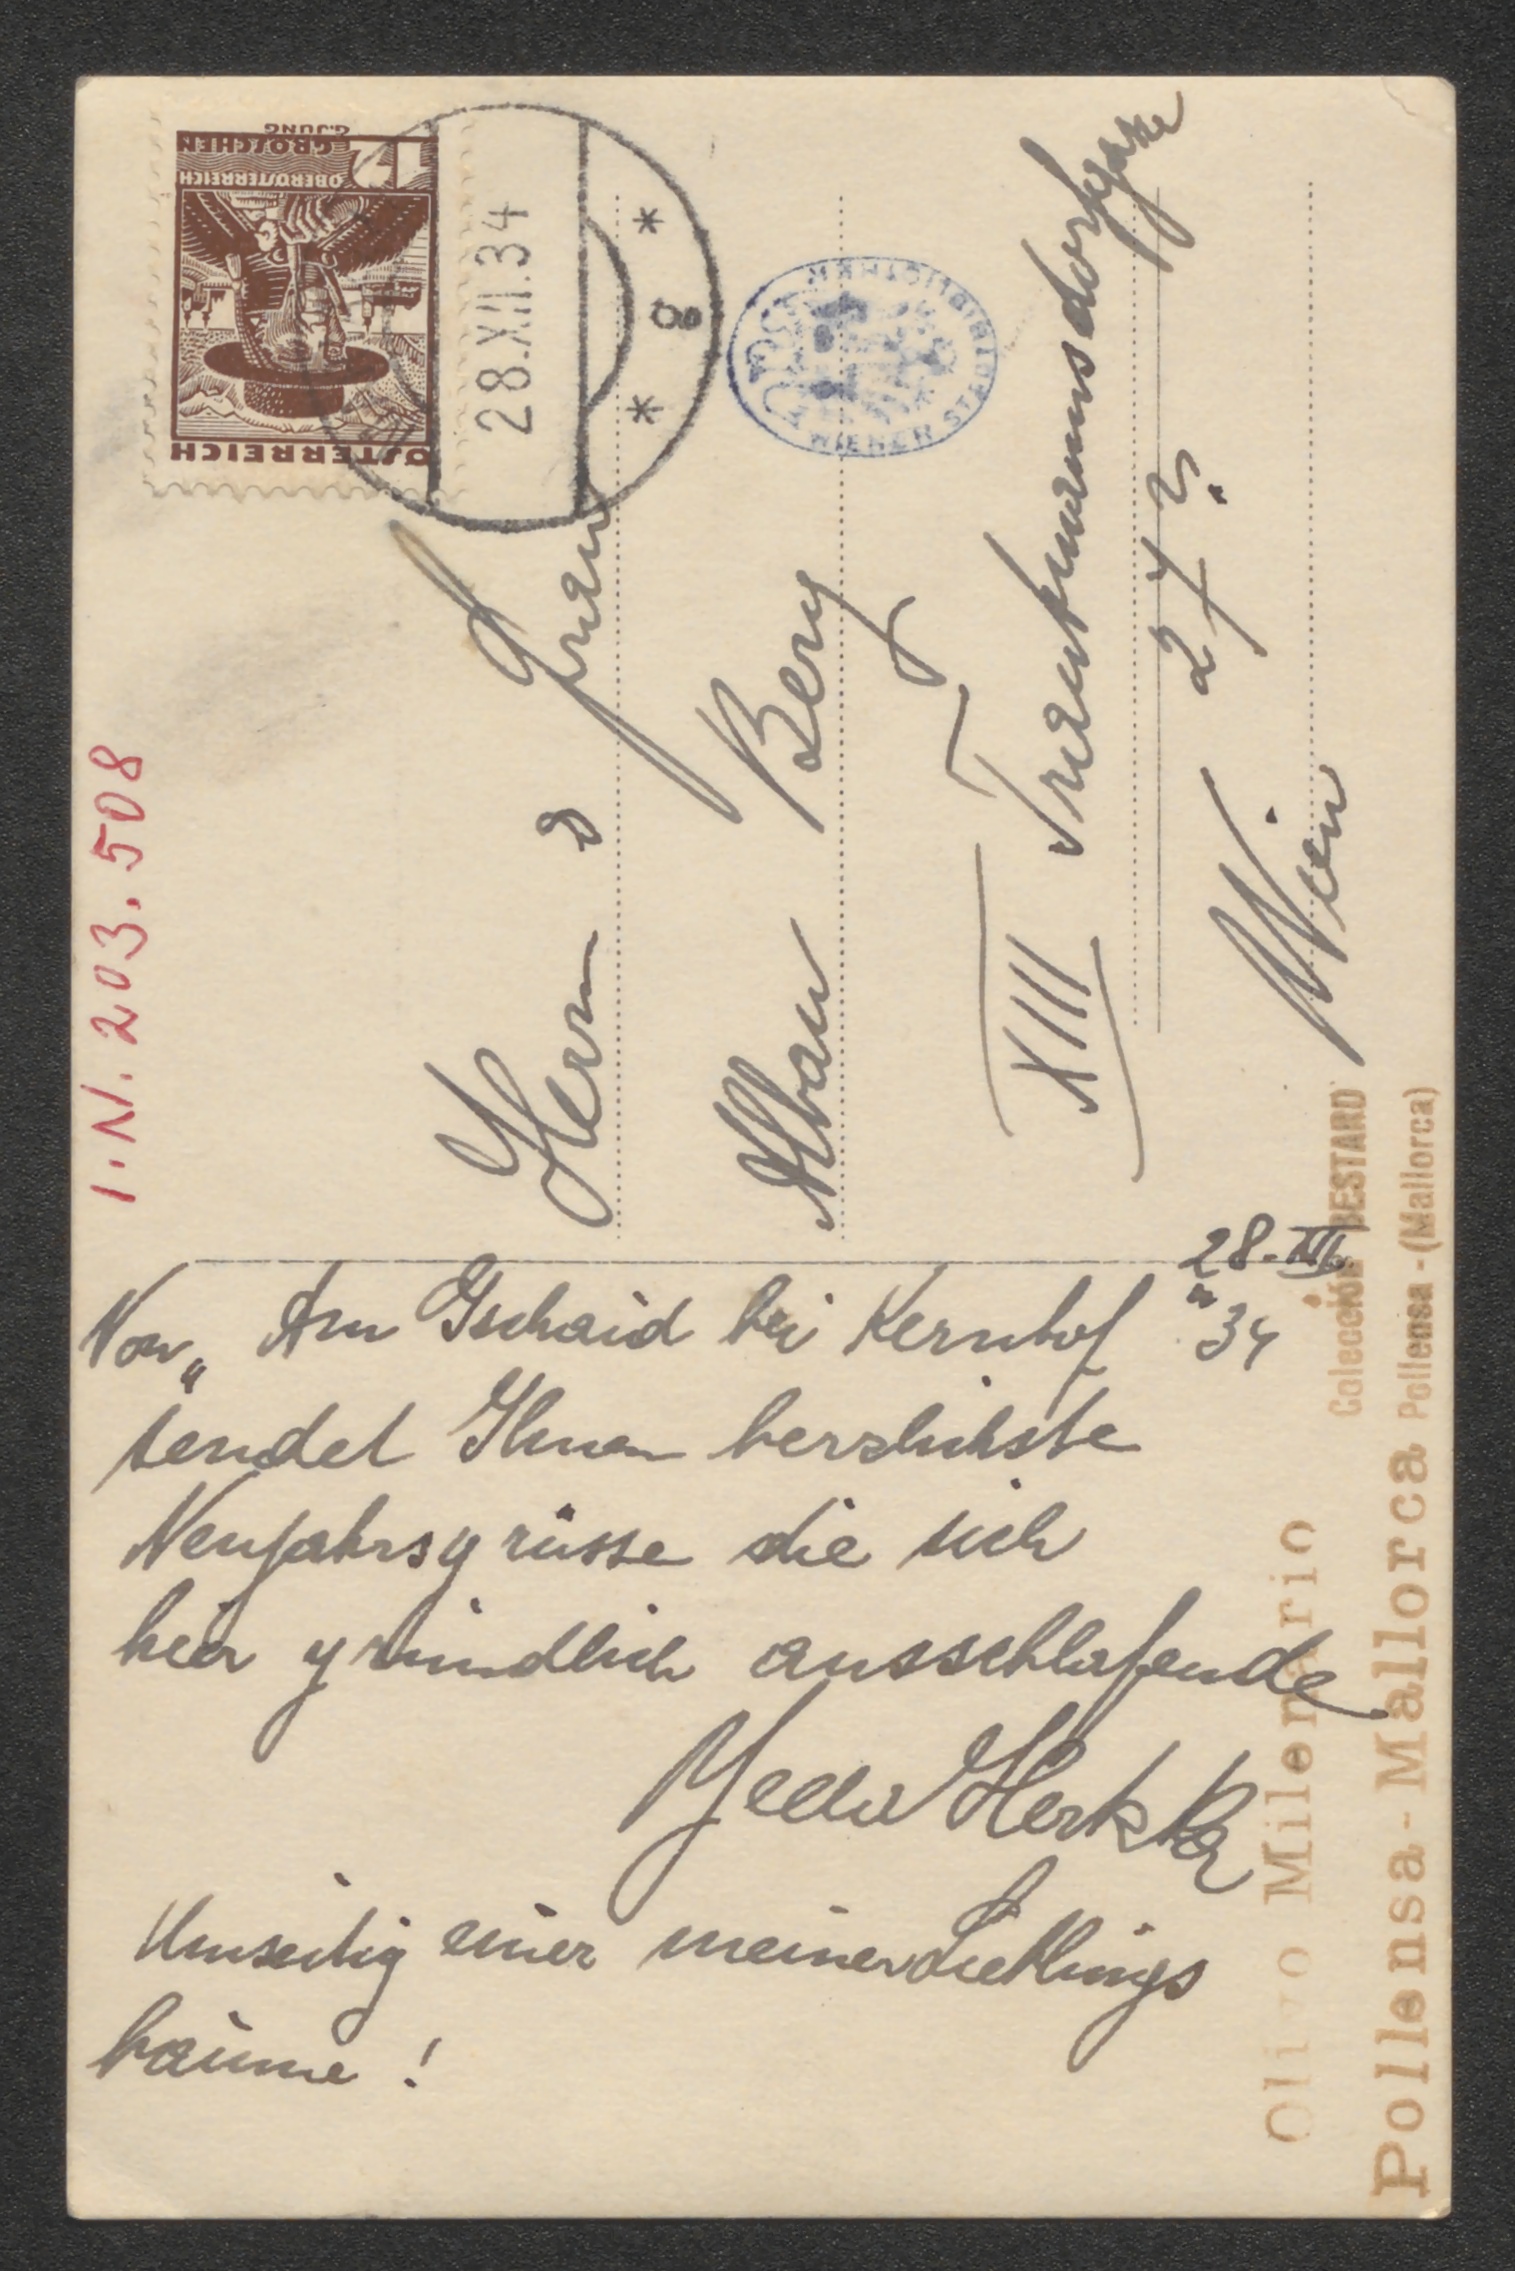 Von „Am Gschaid bei Kernhof"
28. XII
34
sendet Ihnen herzlichste
Neujahrsgrüsse die sich
hier gründlich ausschlafende
Yella Hertzka
Umseitig einer meiner Lieblings
bäume!
Herrn & Frau
Alban Berg
XIII Trauttmannsdorfgasse
27 ?
Wien
I.N. 203.508
ÖSTERREICH
OBERÖSTERREICH
12 GROSCHEN
G.JUNG
28.XII.34
* 8 *
WIENER STADTBIBLIOTHEK
Colección BESTARD
Pollensa-(Mallorca)
Olivo Milenario
Pollensa-Mallorca